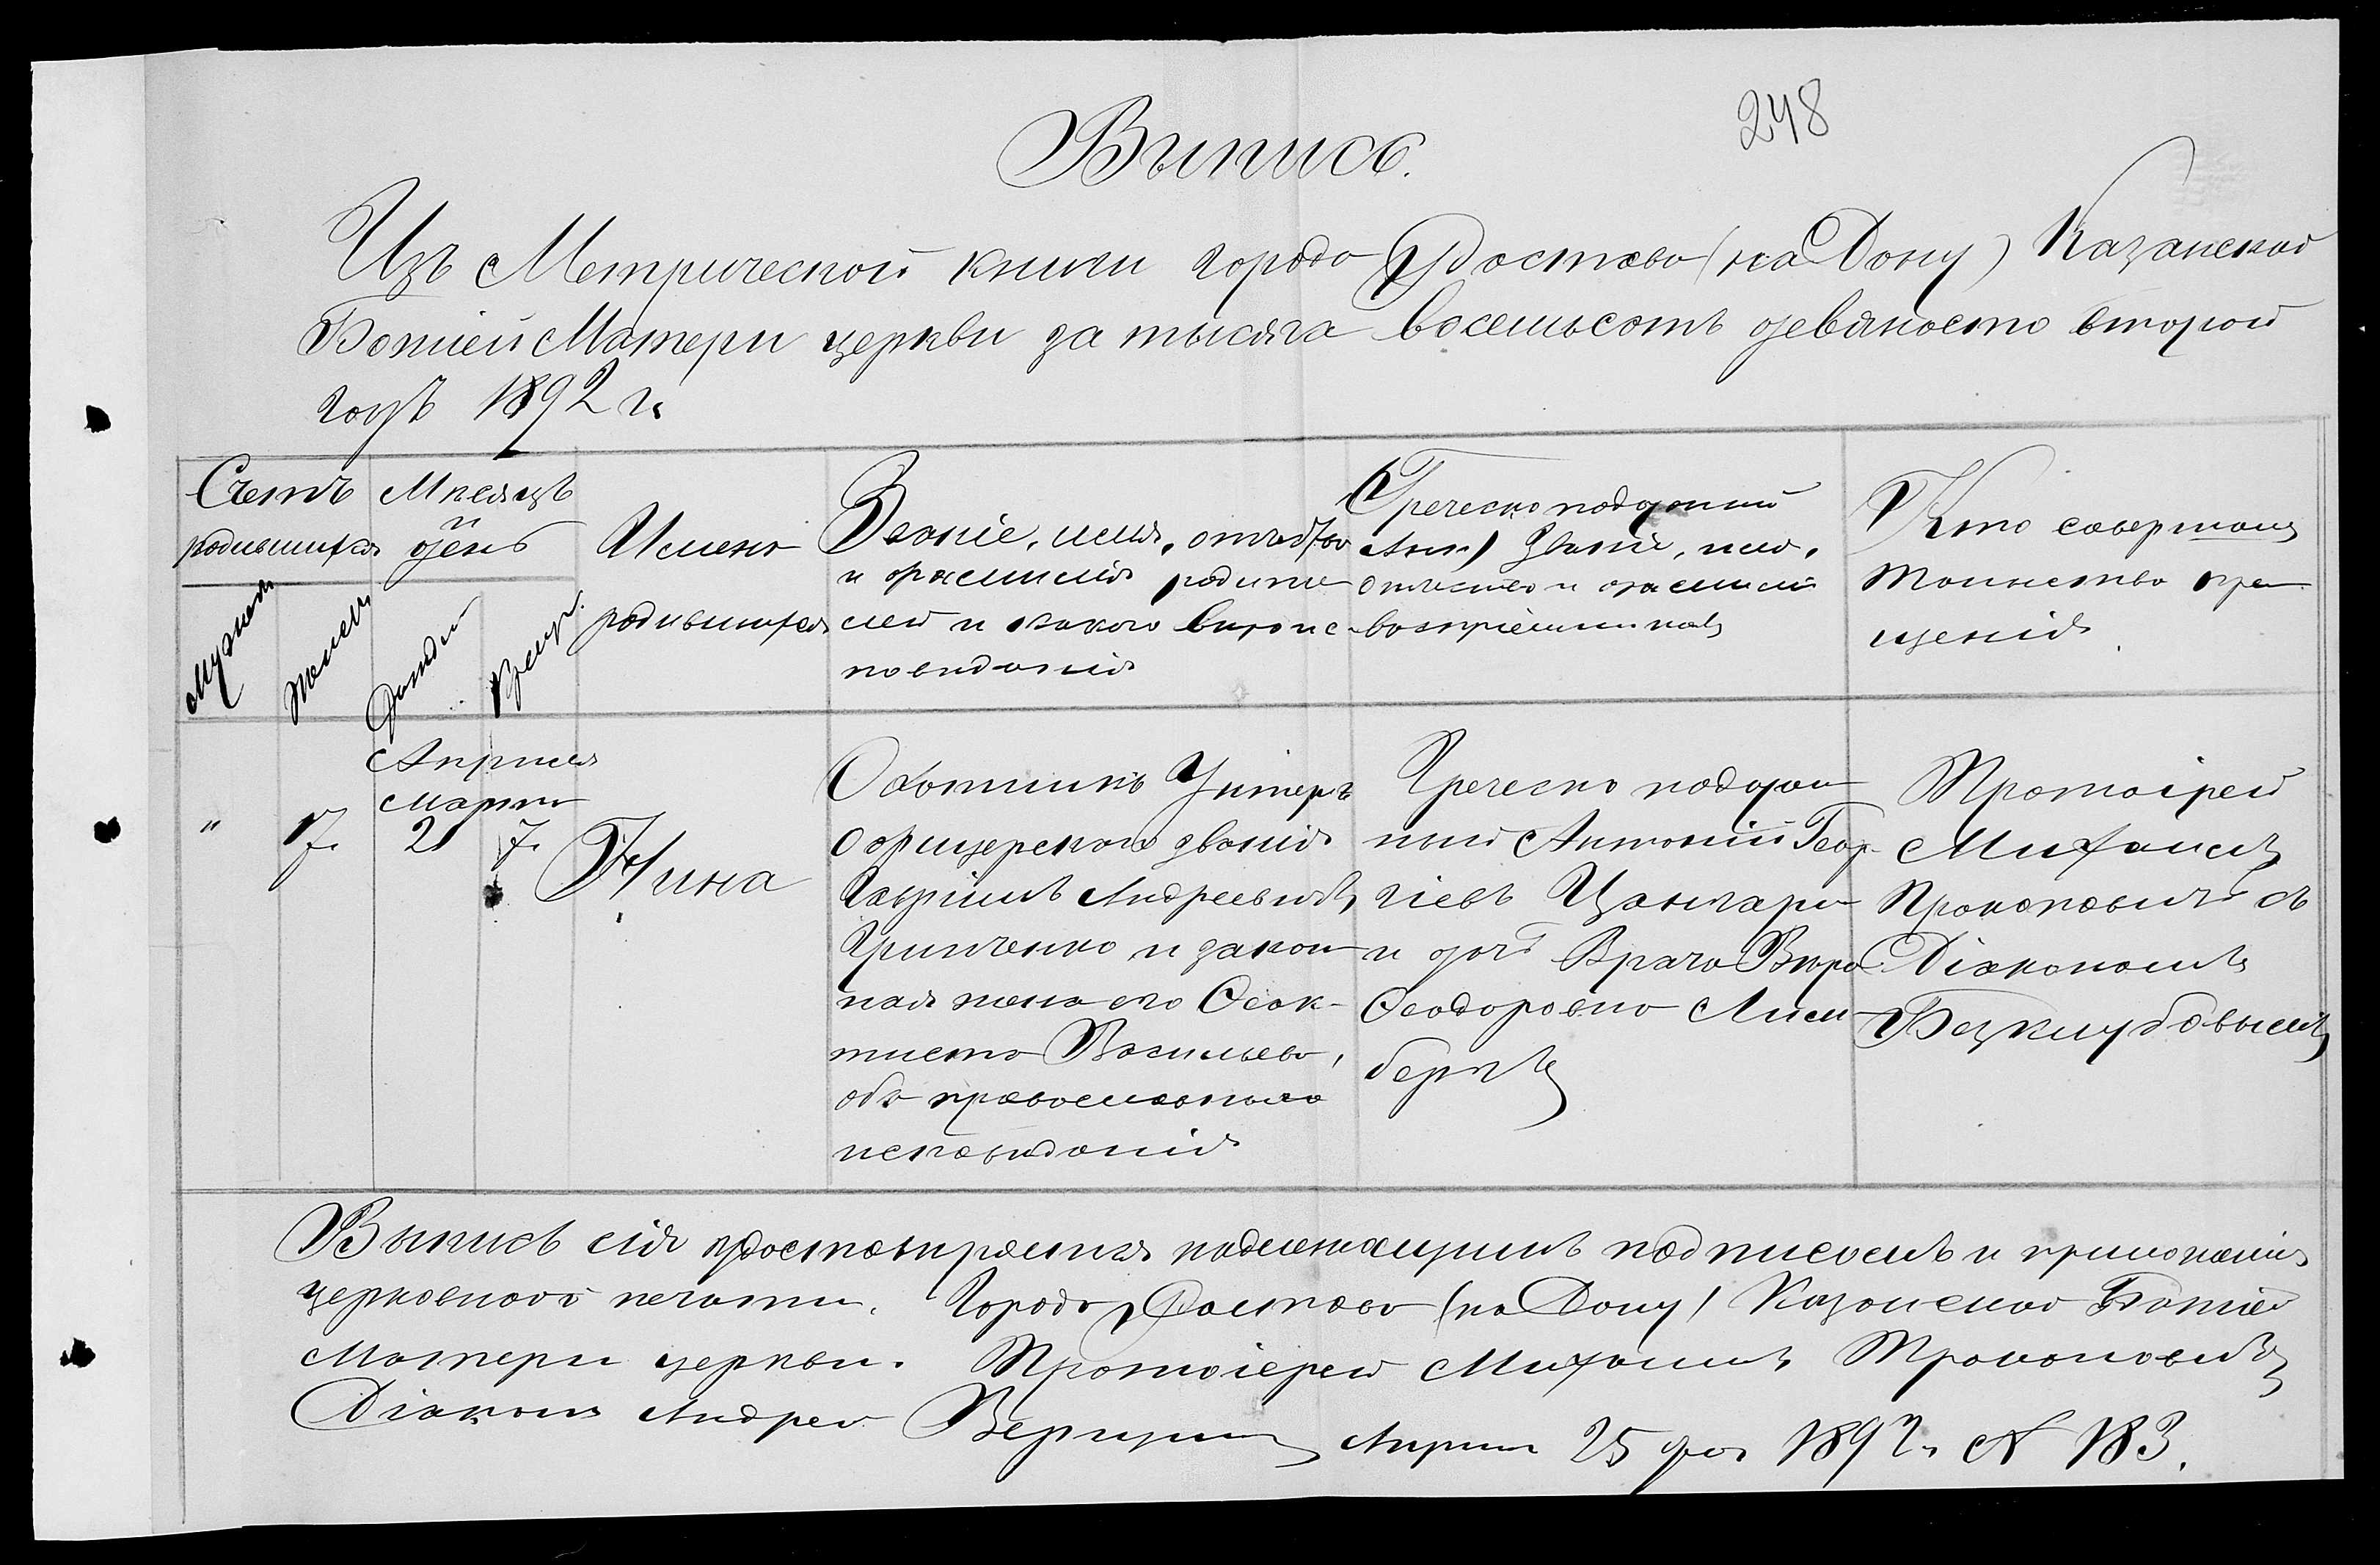 248
Выпись.
Изъ Метрической книги города Ростова (на Дону) Казанской
Божіей Матери церкви за тысяча восемьсотъ девяносто второй
годъ 1892 г.
Счетъ
родившихся
Мужеска
Женск.
Мѣсяцъ
и
день
Рожден
Крещ.
Имена
родившихся
Званіе, имя, отчество
и фамилия родите
лей и какого вѣроис
повѣданія
(Греческо подданный
Звание, имя,
отчество и фамилия
воспріемниковъ
Кто совершалъ
таинство кре
щенія.
Апрѣля
Марта
" 7. 21 7.
Нина
Охотникъ Унтеръ
офицерскаго званія
Гавріилъ Андреевичъ
Гринченко и закон
ная жена его Ѳеок-
тиста Васильева,
оба православнаго
исповѣданія
Греческо поддан
ный Антоній Геор
гіевъ Цангари
и дочь Врача Вѣра
Ѳеодоровна Лим
бергъ
Протоіерей
Михаилъ
Прокоповичъ съ
Діакономъ
Выпись сія удостовѣряется надлежащимъ подписомъ и приложеніемъ
церковной печати. Города Ростова (на Дону) Казанской Божіей
Матери церкви. Протоіерей Михаилъ Прокоповичъ
Діаконъ Андрей Апрѣля 25 дня 1892 г. № 183.